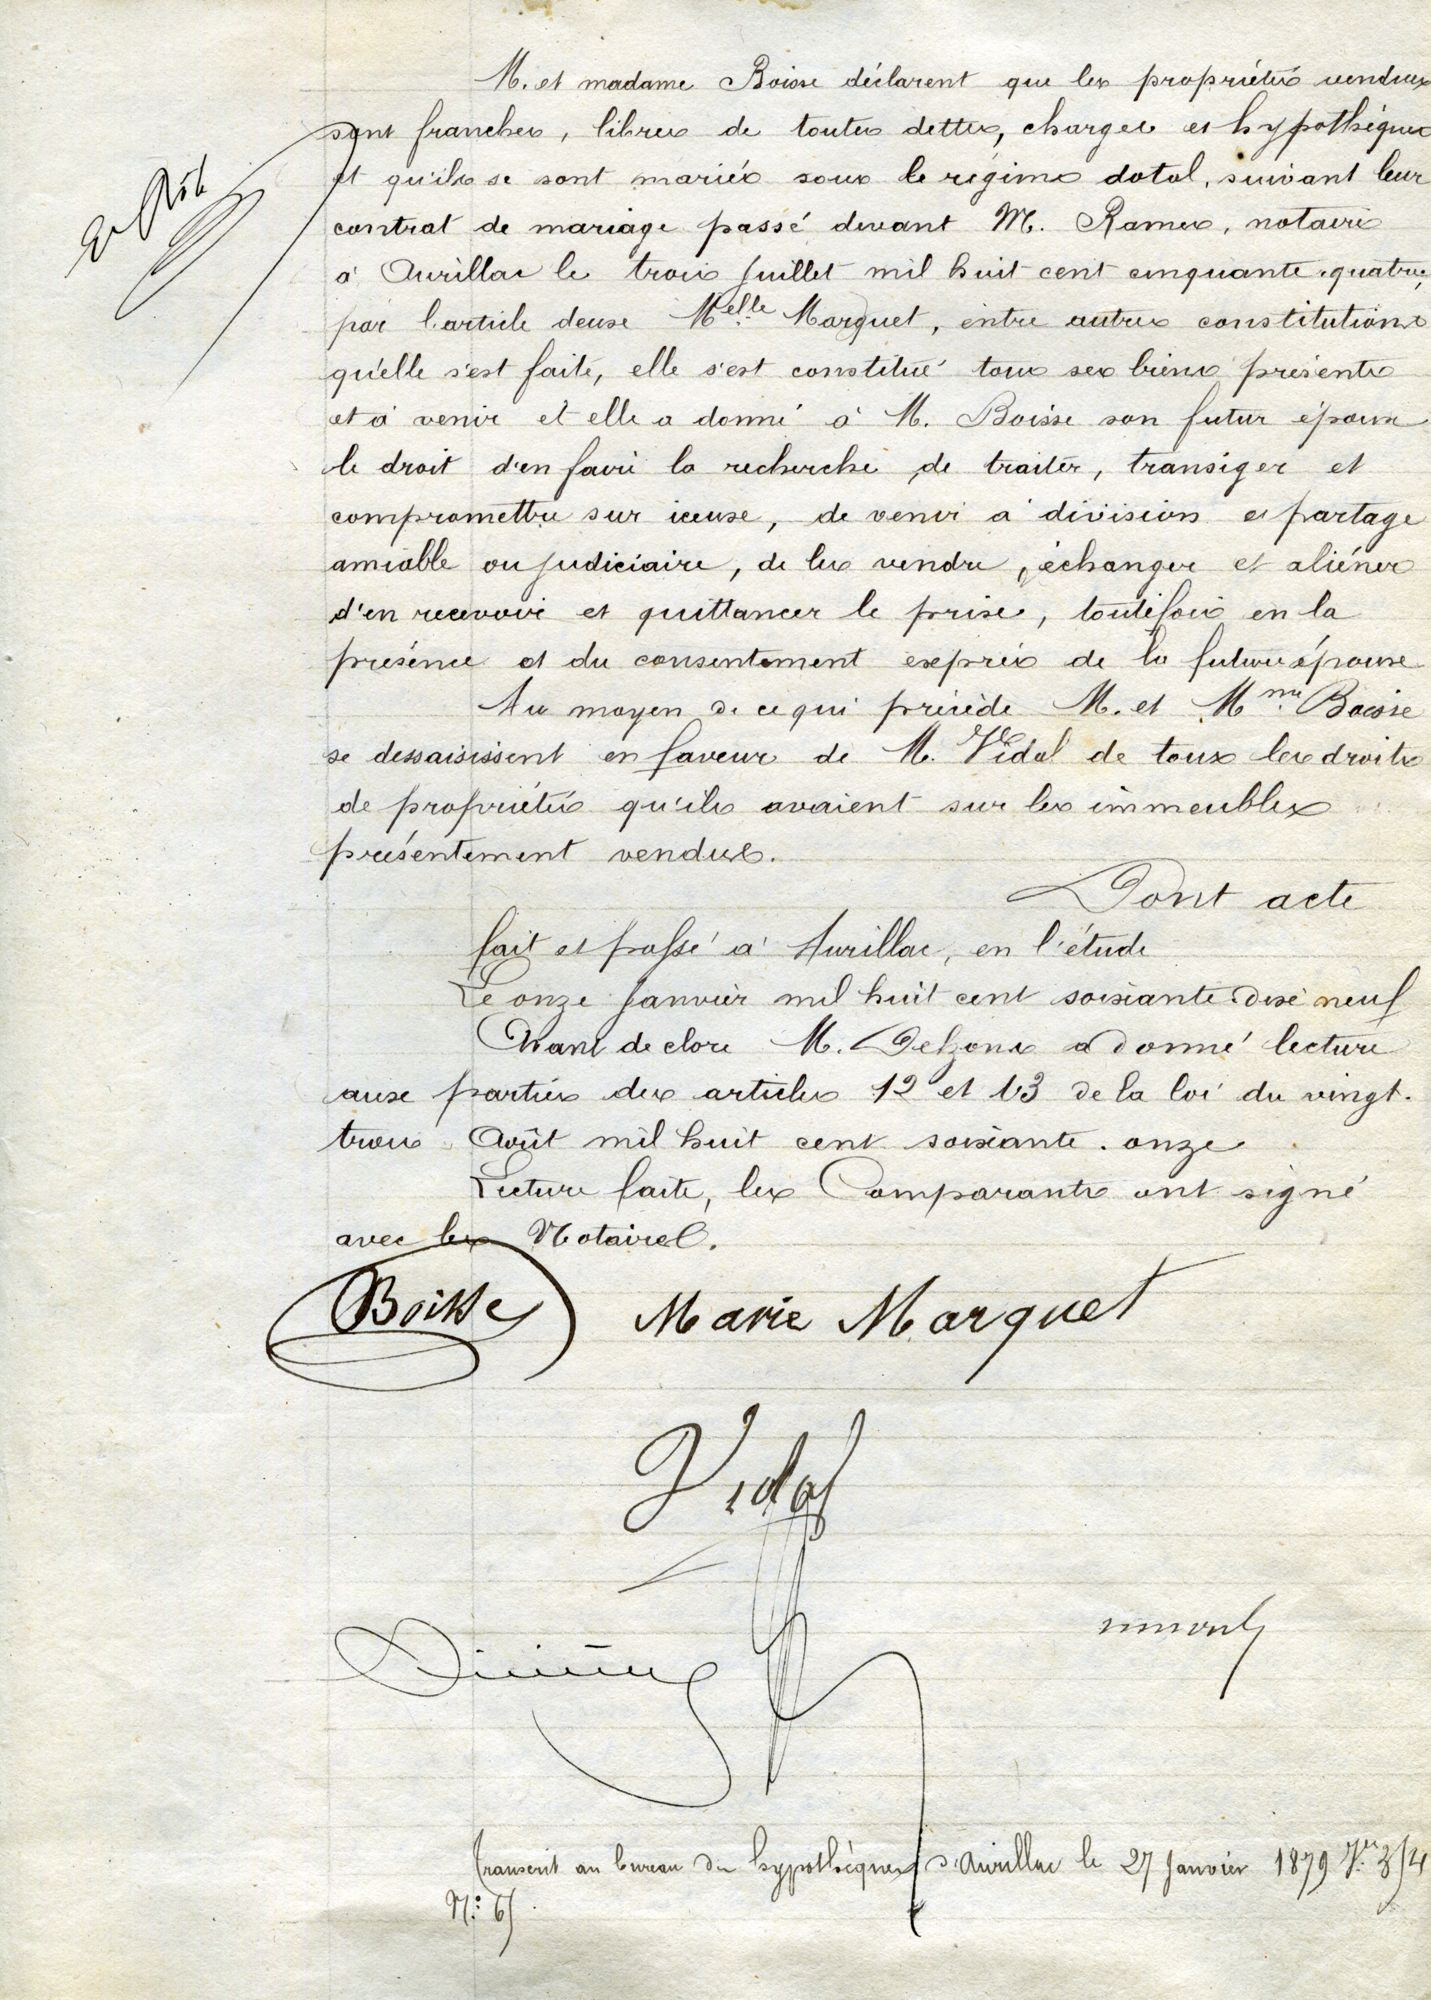 M. et madame Boisse déclarent que les propriétés vendues
sont franches, libres de toutes dettes, charges et hypothèques
et qu'ils se sont mariés sous le régime dotal, suivant leur
contrat de mariage passé devant M. Rames, notaire
à Aurillac le trois Juillet mil huit cent cinquante-quatre,
par l'article deux Melle Marquet, entre autres constitutions
qu'elle s'est faite, elle s'est constitué tous ses biens présents
et à venir et elle a donné à M. Boisse son futur époux
le droit d'en faire la recherche de traiter, transiger et
compromettre sur iceux, de venir à division et partage
amiable ou judiciaire, de les vendre, échanger et aliéner
d'en recevoir et quittancer le prix, toutefois en la
présence et du consentement exprès de la future épouse
Au moyen de ce qui précède M. et Mme Boisse
se dessaisissent en faveur de M. Vidal de tous les droits
de propriétés qu'ils avaient sur les immeubles
présentement vendus.
Dont acte
fait et passé à Aurillac, en l'étude
Le onze Janvier mil huit cent soixante-dix neuf
Avant de clore M. Delzons a donné lecture
aux parties des articles 12 et 13 de la loi du vingt-
trois Août mil huit cent soixante-onze
Lecture faite, les Comparants ont signé
avec les Notaires.
Boisse Marie Marquet
Vidal
Transcrit au bureau des hypothèques d'Aurillac le 27 Janvier 1879 Vol.